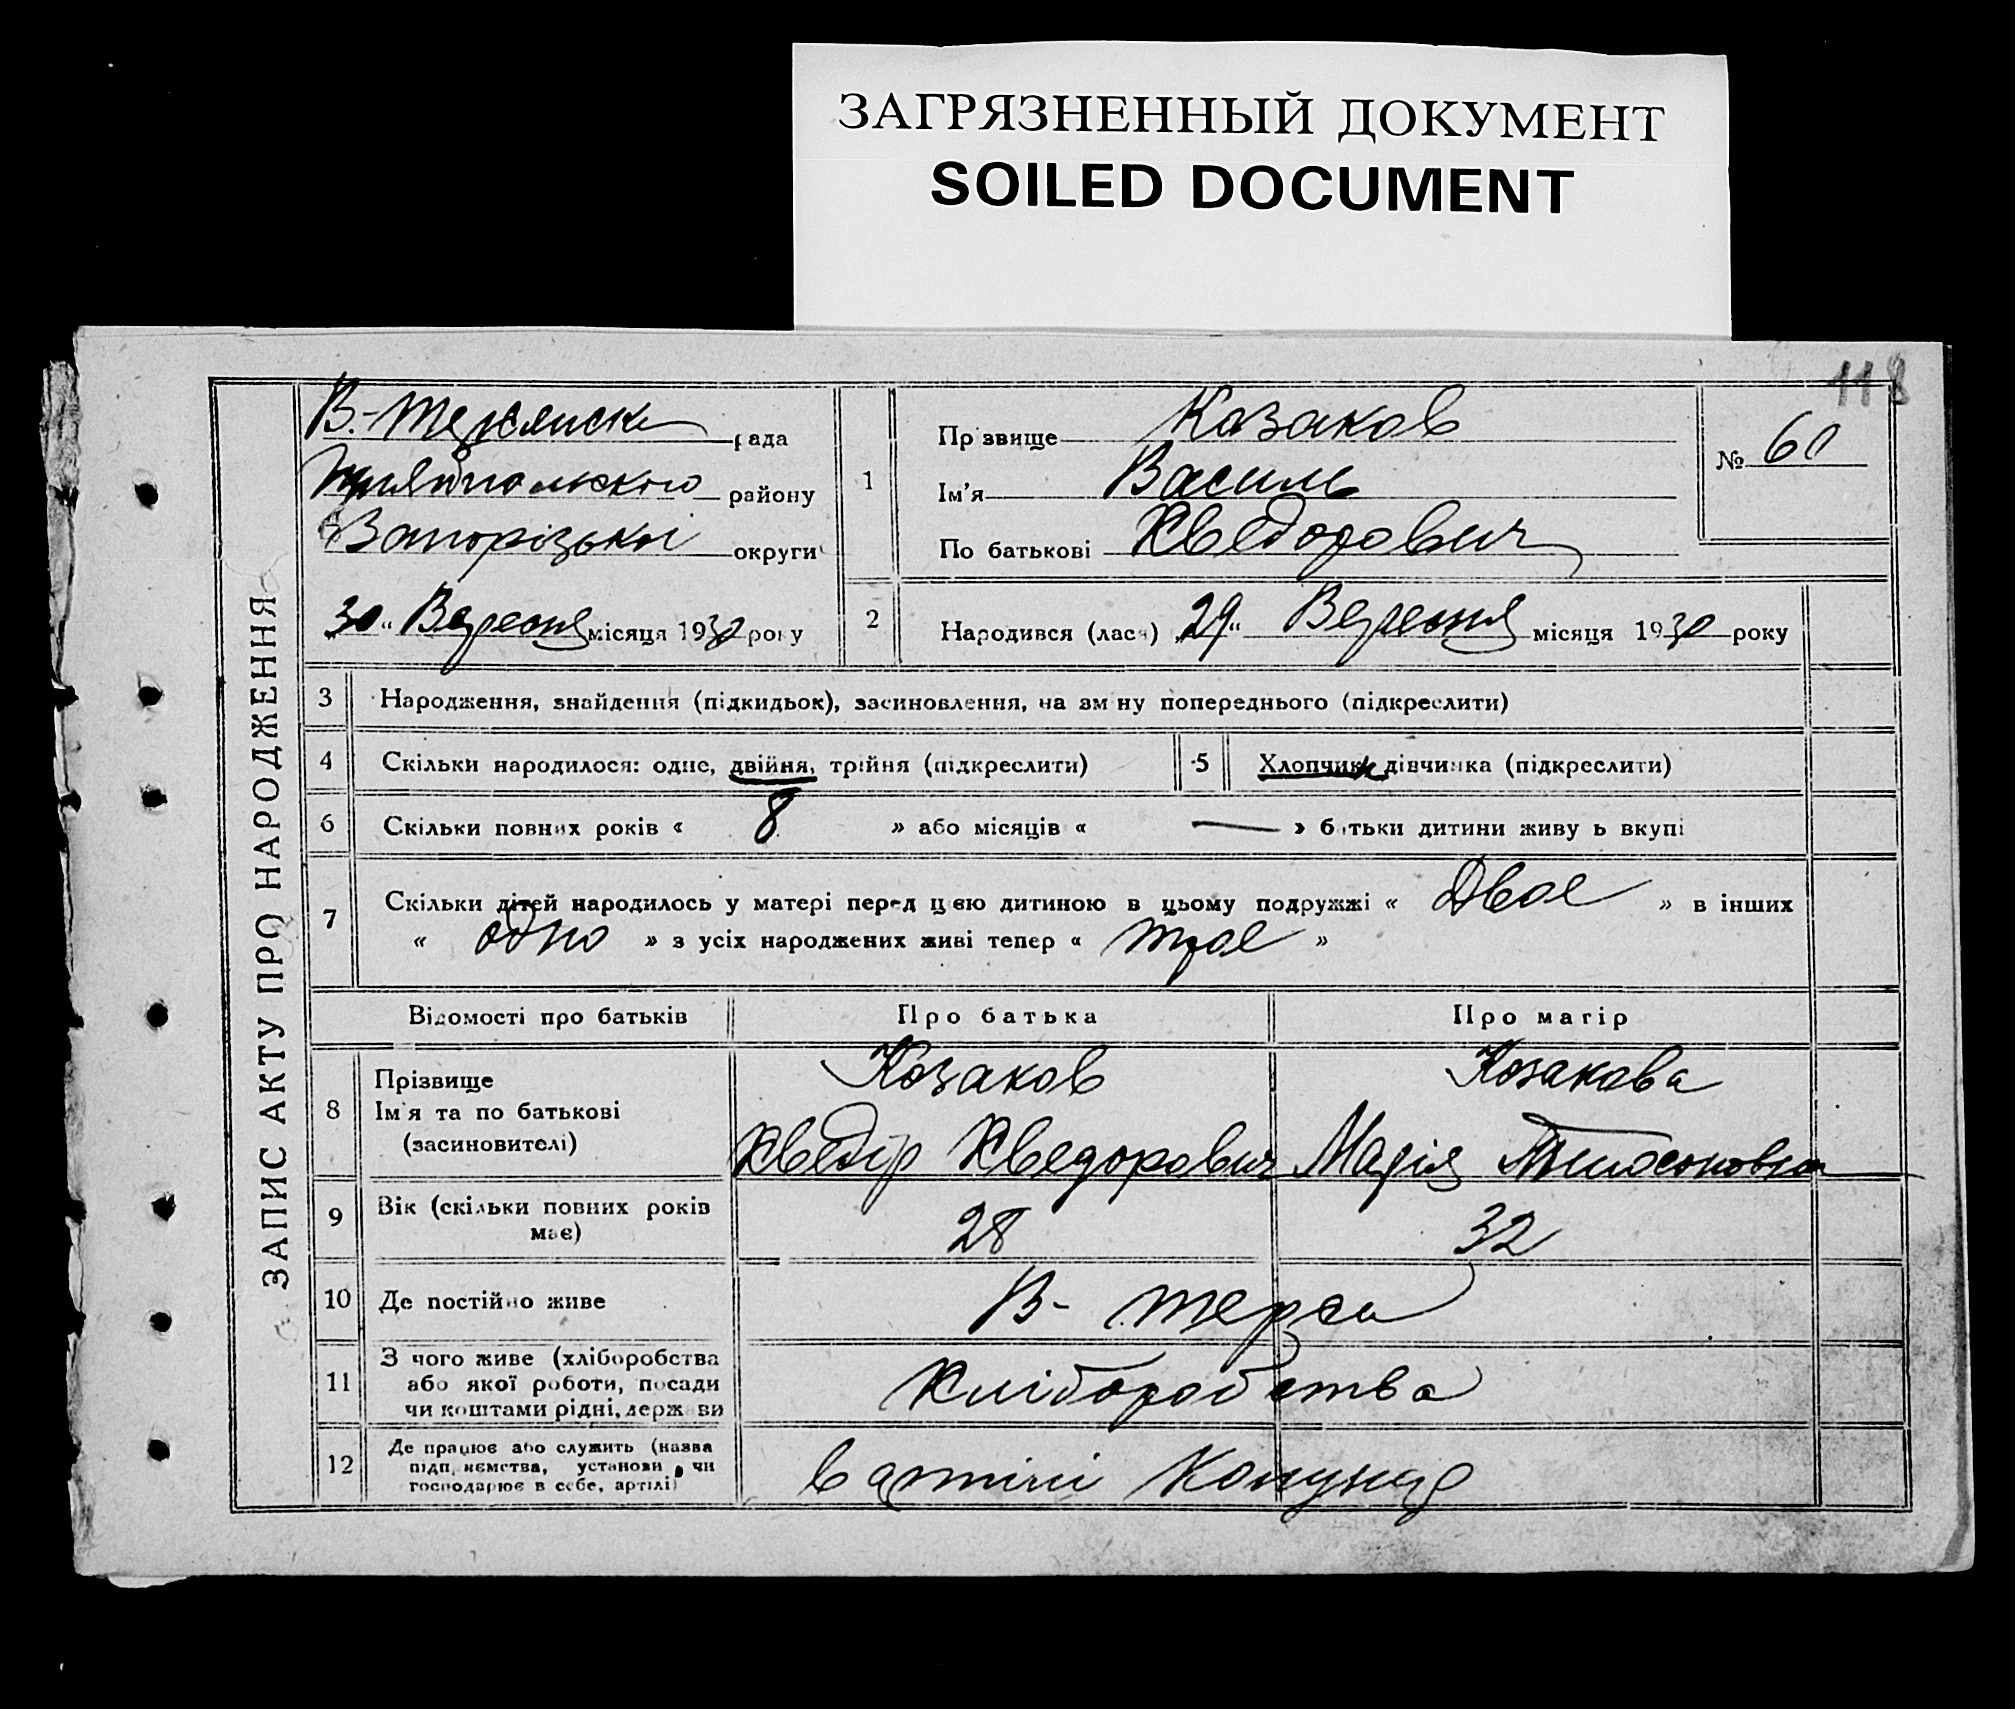 ЗАГРЯЗНЕННЫЙ ДОКУМЕНТ
SOILED DOCUMENT
118
ЗАПИС АКТУ ПРО НАРОДЖЕННЯ
В.-Терсянска рада
району
Запорізької округи
„30“ Вересня місяця 1930 року
1
Прізвище Козаков
Ім'я Василь
По батькові Хведорович
№ 60
2 Народився (лася) „29“ Вересня місяця 1930 року
3 Народження, знайдення (підкидьок), засиновлення, на зміну попереднього (підкреслити)
4 Скільки народилося: одне, двійня, трійня (підкреслити)
5 Хлопчик, дівчинка (підкреслити)
6 Скільки повних років « 8 » або місяців « — » батьки дитини живуть вкупі
7 Скільки дітей народилось у матері перед цією дитиною в цьому подружжі « Двое » в інших
« одно » з усіх народжених живі тепер « трое »
Відомості про батьків Про батька Про матір
8 Прізвище
Ім'я та по батькові
(засиновителі)
Козаков
Хведір Хведорович
Козакова
Марія
9 Вік (скільки повних років
має)
28 32
10 Де постійно живе В- Терса
11 З чого живе (хліборобства
або якої роботи, посади
чи коштами рідні, держави
Хліборобства
12 Де працює або служить (назва
підприємства, установи чи
господарює в себе, артілі)
в артілі